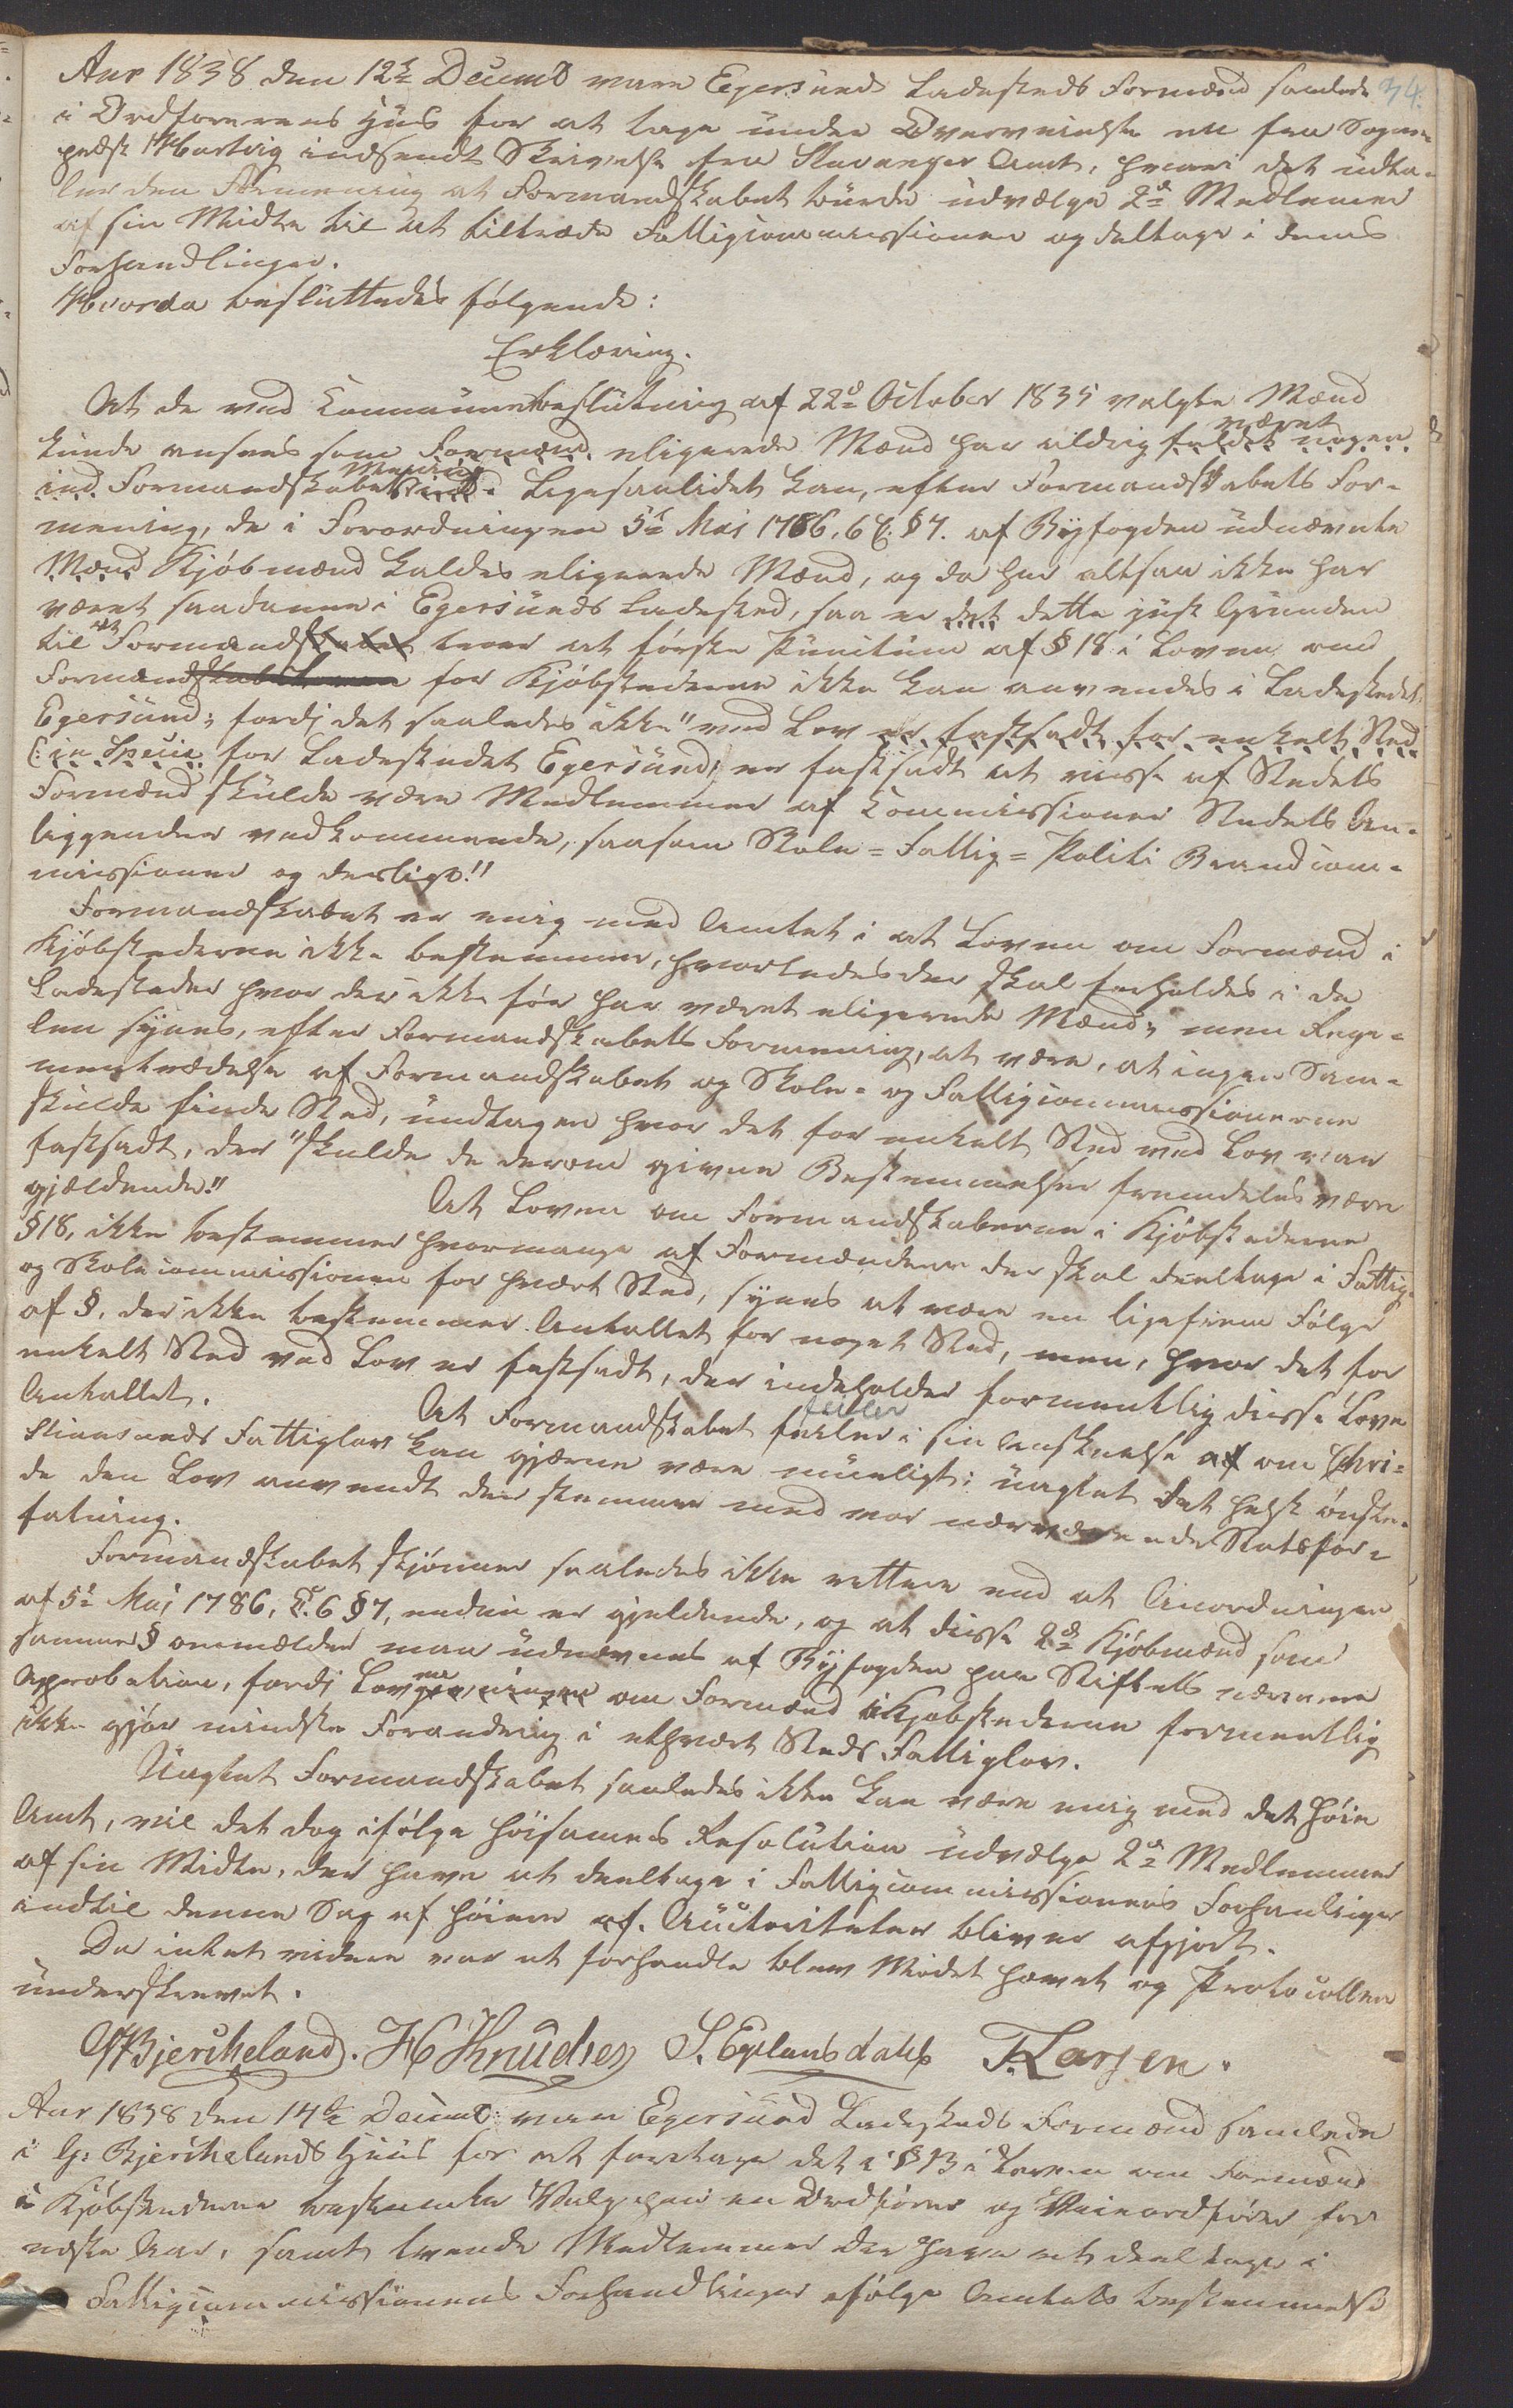 Aar 1838 den 12te Decemb vare Egersunds Ladesteds Formænd samlede 34.
i Ordførerens Huus for at tage under Overveielse en fra Sogne-
præst Hartvig indsendt Skrivelse fra Stavanger Amt, hvori det udta-
ler den Formening at Formandskabet burde udvælge 2de Medlemmer
af sin Midte til at tiltræde Fattigcommissionen og deltage i dens
Forhandlinger.
Hvorda besluttedes følgende:
Erklæring.
At de ved Communebeslutning af 22de October 1835 valgte Mænd
været
kunde ansees som Formænd eligerede Mænd har aldrig faldet nogen
Mening
ind Formandskabets ind. Ligesaalidet kan, efter Formandskabets For-
mening, de i Forordningen 5te Mai 1786, 6 C. §7. af Byfogden udnævnte
Mænd Kjøbmænd kaldes eligerede Mænd, og da her altsaa ikke har
været saadanne i Egersunds Ladested, saa er det dette just Grunden
til at Formandskabet troer at første Punctum af §18 i Loven om
Formandskaberne for Kjøbstederne ikke kan anvendes i Ladestedet
Egersund; fordi det saaledes ikke "ved Lov er fastsadt for enkelt Sted
(: in Specie for Ladestedet Egersund, er fastsadt at visse af Stedets
Formænd skulde være Medlemmer af Commissioner Stedets An-
liggender vedkommende, saasom Skole- Fattig- Politi Brandcom-
missioner og deslige!"
Formandskabet er enig med Amtet i at Loven om Formænd i
Kjøbstederne ikke bestemmer, hvorledes der skal forholdes i de
Ladesteder hvor der ikke før har været eligerede Mænd; men Rege-
len synes, efter Formandskabets Formening, at være, at ingen Sam-
mentrædelse af Formandskabet og Skole- og Fattigcommissionerne
skulde finde Sted, undtagen hvor det for enkelt Sted ved Lov var
fastsadt, der "skulde de derom givne Bestemmelser fremdeles være
gjældende."
At Loven om Formandskaberne i Kjøbstederne
§18, ikke bestemmer hvormange af Formændene der skal deeltage i Fattig-
og Skolecommissionen for hvert Sted, synes at være en ligefrem Følge
af §, der ikke bestemmer Antallet for noget Sted, men, hvor det for
enkelt Sted ved Lov er fastsadt, der indeholder formentlig disse Love
Antallet.
At Formandskabet feiler i sin Anskuelse af om Chri-
feiler
stiansands Fattiglov kan gjærne være mueligt; uagtet det helst ønske-
de den Lov anvendt der stemmer med vor nærværende Statsfor-
fatning.
Formandskabet skjønner saaledes ikke rettere end at Anordningen
af 5te Mai 1786, C. 6 §7, endnu er gjeldende, og at disse 2de Kjøbmænd som
samme § ommelder maa udnævnes af Byfogden paa Stiftets nærmere
Approbation, fordi Loven om Formænd i Kjøbstederne formentlig
ikke gjør mindste Forandring i ethvert Steds Fattiglov.
Uagtet Formandskabet saaledes ikke kan være enig med det høie
Amt, vil det dog ifølge høisammes Resolution udvælge 2de Medlemmer
af sin Midte, der have at deeltage i Fattigcommissionens Forhanlinger
indtil denne Sag af høiere af. Auctoriteter bliver afgjort.
Da intet videre var at forhandle blev Mødet hævet og Protocollen
underskrevet.
G Bjerckeland. H Knudsen S. Eplandsdahl T. Larsen.
Aar 1838 den 14de Decemb: vare Egersund Ladesteds Formænd samlede
i G: Bjerckelands Huus for at foretage det i §13 i Loven om Formænd
i Kjøbstederne bestemte Valg paa en Ordfører og Viceordfører for
næste Aar, samt tvende Medlemmer der have at deeltage i
Fattigcommissionens Forhandlinger ifølge Amtets bestemmelse